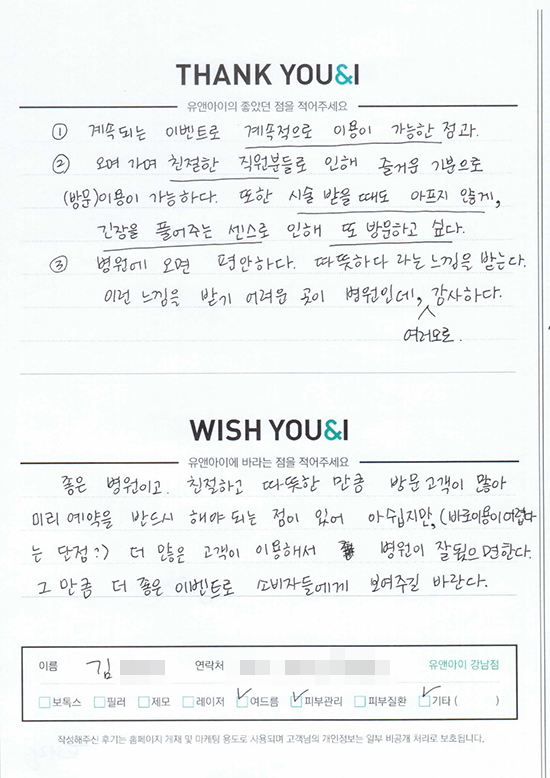 THANK YOU&I
유앤아이의 좋았던 점을 적어주세요
① 계속되는 이벤트로 계속적으로 이용이 가능한 점과.
② 오며 가며 친절한 직원분들로 인해 즐거운 기분으로
(방문)이용이 가능하다. 또한 시술 받을 때도 아프지 않게,
긴장을 풀어주는 센스로 인해 또 방문하고 싶다.
③ 병원에 오면 편안하다. 따뜻하다 라는 느낌을 받는다.
이런 느낌을 받기 어려운 곳이 병원인데, 감사하다.
여러모로.
WISH YOU&I
유앤아이에 바라는 점을 적어주세요
좋은 병원이고. 친절하고 따뜻한 만큼 방문고객이 많아
미리 예약을 반드시 해야 되는 점이 있어 아쉽지만, (바로이용이 어렵다
는 단점?) 더 많은 고객이 이용해서 병원이 잘됬으면한다.
그 만큼 더 좋은 이벤트로 소비자들에게 보여주길 바란다.
이름 김 연락처 유앤아이 강남점
보톡스 필러 제모 레이저 여드름 피부관리 피부질환 기타 ( )
작성해주신 후기는 홈페이지 게재 및 마케팅 용도로 사용되며 고객님의 개인정보는 일부 비공개 처리로 보호됩니다.